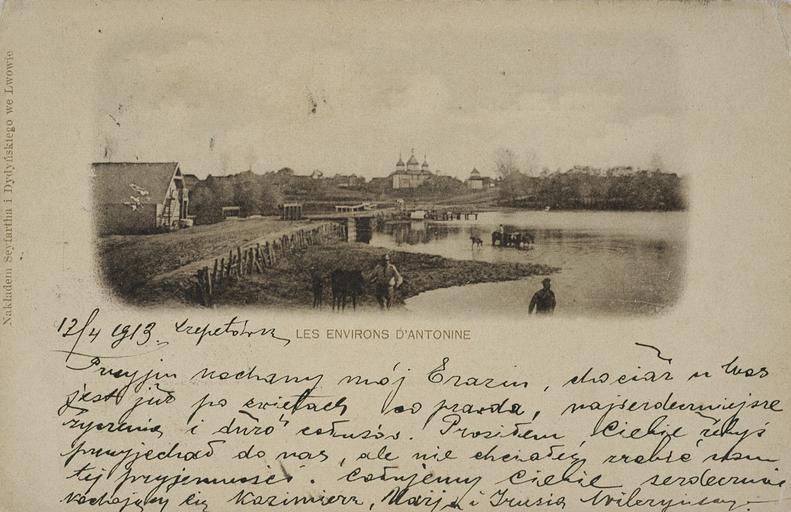 Nakładem Seyfartha i Dydyńskiego we Lwowie
LES ENVIRONS D'ANTONINE
12/4 1913. Szepetówka
Przyjm kochany mój Erazm, chociaż u Was
jest już po świętach co prawda, najserdeczniejsze
życzenia i dużo całusów. Prosiłem Ciebie żebyś
przyjechał do nas, ale nie chciałeś zrobić nam
tej przyjemności. Całujemy Ciebie serdecznie
kochający Cię Kazimierz, Marja i Irusia